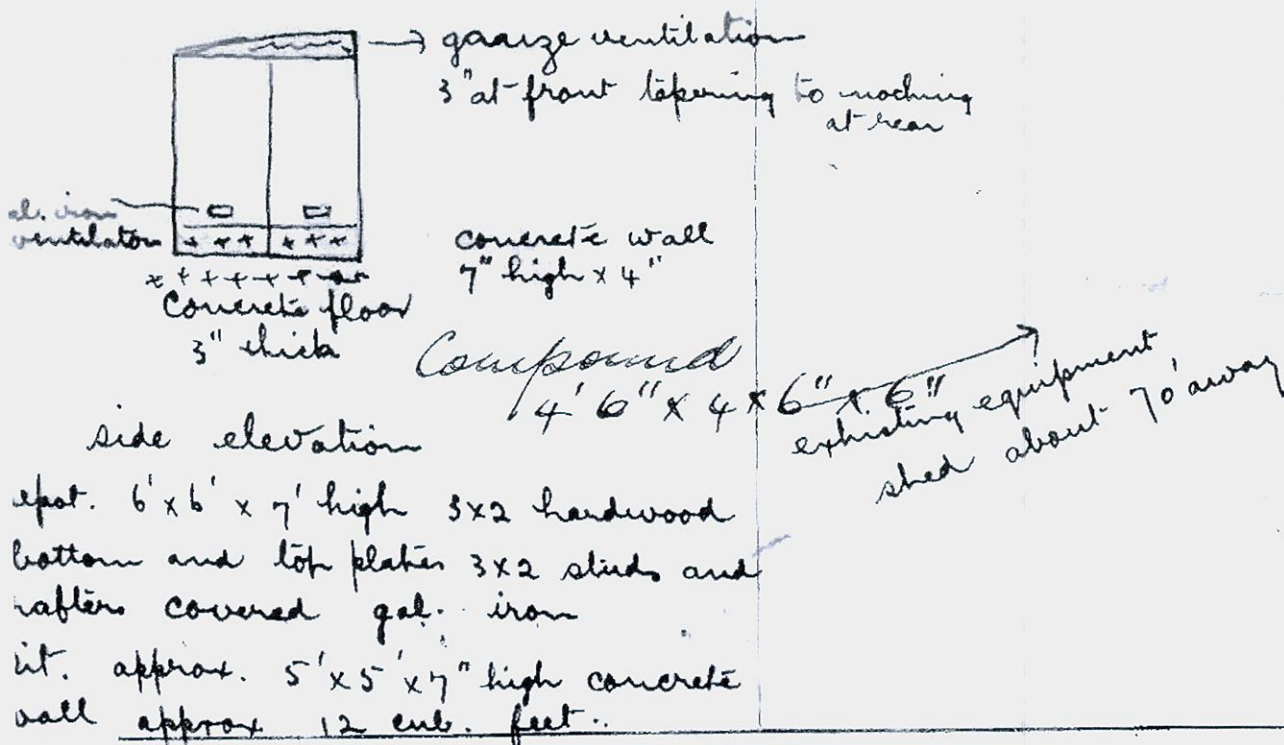 gauze ventilation
3" at front tapering to nothing
at rear
al. iron
ventilators
concrete wall
7" high x 4"
Concrete floor
3" thick
Compound
4' 6" x 4 x 6" x 6"
exhisting equipment
shed about 70' away
side elevation
epot. 6' x 6' x 7' high 3x2 hardwood
bottom and top plates 3x2 studs and
rafters covered gal. iron
it. approx. 5' x 5' x 7" high concrete
wall approx 12 cub. feet..